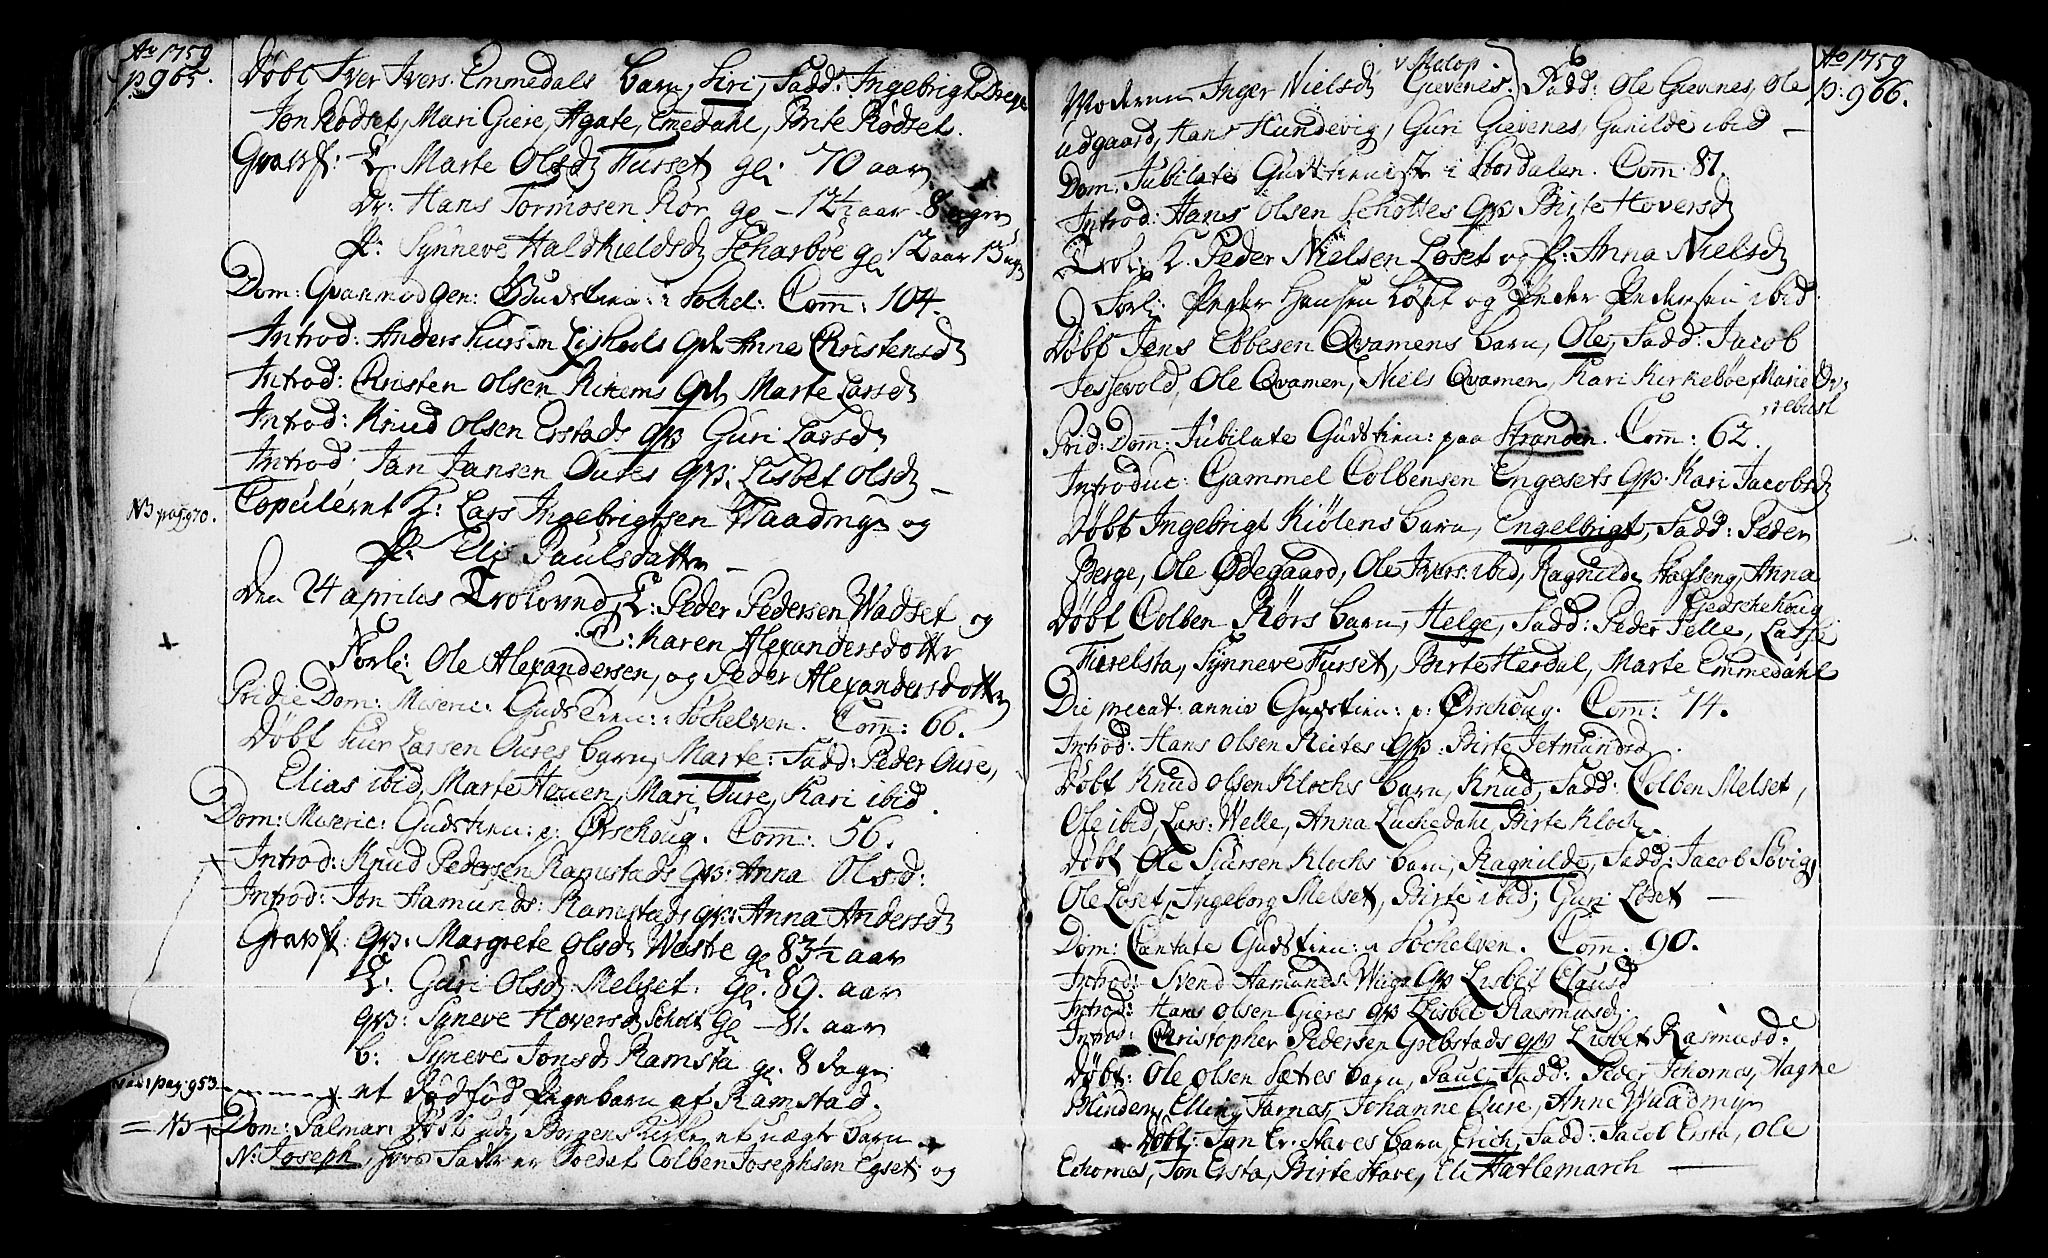 Ao 1759
p. 965.
Døbt Iver Ivers: Emmedals barn, Siri, Fadd: Ingebrigt Drege
Jon Rødset, Mari Giere, Agate Emedahl, Brite Rødset.
Gravf: E. Marte Olsd Furset gl: 70 aar
Dr: Hans Tormosen Rør gl – 12½ aar 8 uger
P: Synneve Haldkieldsd Scharbøe gl 12 aar 13 ug
Dom: Qvasimodogen: Gudstien: i Søchel: Com: 104.
Introd: Anders Olsen qv Anne Christensd
Introd: Christen Olsen Rixems qv Marte Larsd
Introd: Knud Olsen Erstads qv Guri Larsd
Introd: Jan Jansen Oures qv: Lisbet Olsd –
NB pag: 970.
Copulernt E: Lars Ingebrigtsen Waadmyr og
P. Elis Paulsdatter –
Den 24 aprilis Trolovnd E: Peder Pedersen Wadset og
P: Karen Alexandersdotter
Forl: Ole Alexandersen, og Peder Alexandersdotter
Pridie Dom: Miseric: Gudstien: i Søchelven. Com: 66.
Døbt Siur Larsen Oures barn, Marte: Fadd: Peder Oure,
Elias ibid, Marte Heuen, Mari Oure, Kari ibid.
Dom: Miseric: Gudstien: p: Ørschoug. Com: 56.
Introd: Knud Pedersen Ramstads qv: Anna Olsd:
Introd: Jon Hamunds: Ramstads qv: Anna Andersd
Gravf: qv: Margrete Olsd Wæstre gl 83½ aar
E: Guri Olsd Melset. gl. 89. aar
qv: Syneve Hoversd Scholt gl – 81. aar
b: Syneve Jonsd Ramsta gl. 8 dage
pag: 953 et dødfød Pigebarn af Ramstad.
= NB Dom: Palmar: Døbt udi Borgens Kirke et uægte barn
N: Joseph, hvis Fader er Soldat Colben Josephsen Egset og
Ao 1759
p: 966.
Moderen Inger Nielsd Gievenes. Fadd: Ole Gievenes, Ole
Udgaard, Hans Hundevig, Guri Gievenes, Gunilde ibid –
Dom: Jubilate Gudstieniste i Stordalen. Com: 81.
Introd: Hans Olsen Scholtes qv Birte Hoversd
Trol: E. Peder Nielsen Løset og P: Anna Nielsd
Forl: Peder Hansen Løset og Peder Pedersen ibid
Døbt Jens Ebbesen Qvamens barn, Ole, Fadd: Jacob
Jessevold, Ole Qvamen, Niels Qvamen, Kari Kirkebøe, Marie
Prid: Dom: Jubilate Gudstien: paa Stranden. Com: 62.
Introduc: Gammel Colbensen Engesets qv. Kari Jacobsd
Døbt Ingebrigt Kiølens barn, Engelbrigt, Fadd: Peder
Berge, Ole Ødegaard, Ole Ivers: ibid, Ragnilde Hafseng, Anna
Gedschehoug
Døbt Colben Rørs barn, Helge, Fadd: Peder Pelle, Lasse
Furelsta, Synneve Furset, Birte Herdal, Marte Emmedahl
Die precat: anniv Gudstien: p: Ørschoug. Com: 74.
Introd: Hans Olsen Reites qv: Birte Jetmundsd.
Døbt Knud Olsen Klochs barn, Knud, Fadd: Colben Melset,
Ole ibid, Lars: Welle, Anna Luchedahl, Birte Kloch
Døbt Ole Siursen Klochs barn, Ragnilde, Fadd: Jacob Søvig,
Ole Løset, Ingeborg Melset, Birte ibid, Guri Løset –
Dom: Cantate Gudstien: i Søchelven. Com. 90.
Introd: Svend Hamunds: Wiigs qv Lisbet Clausd
Introd: Hans Olsen Gieres qv Lisbet Rasmusd.
Introd: Christopher Pedersen Grebstads qv Lisbet Rasmusd:
Døbt: Ole Olsen Sætres barn, Paul, Fadd: Peder Schornes, Hagne
Blinden, Elling Jarnes, Johanne Oure, Anne Waadmyr
Døbt: Jon Er: Staves barn, Erich, Fadd: Jacob Ersta, Ole
Echornes, Jon Ersta, Birte Stave, Eli Hatlemarch –